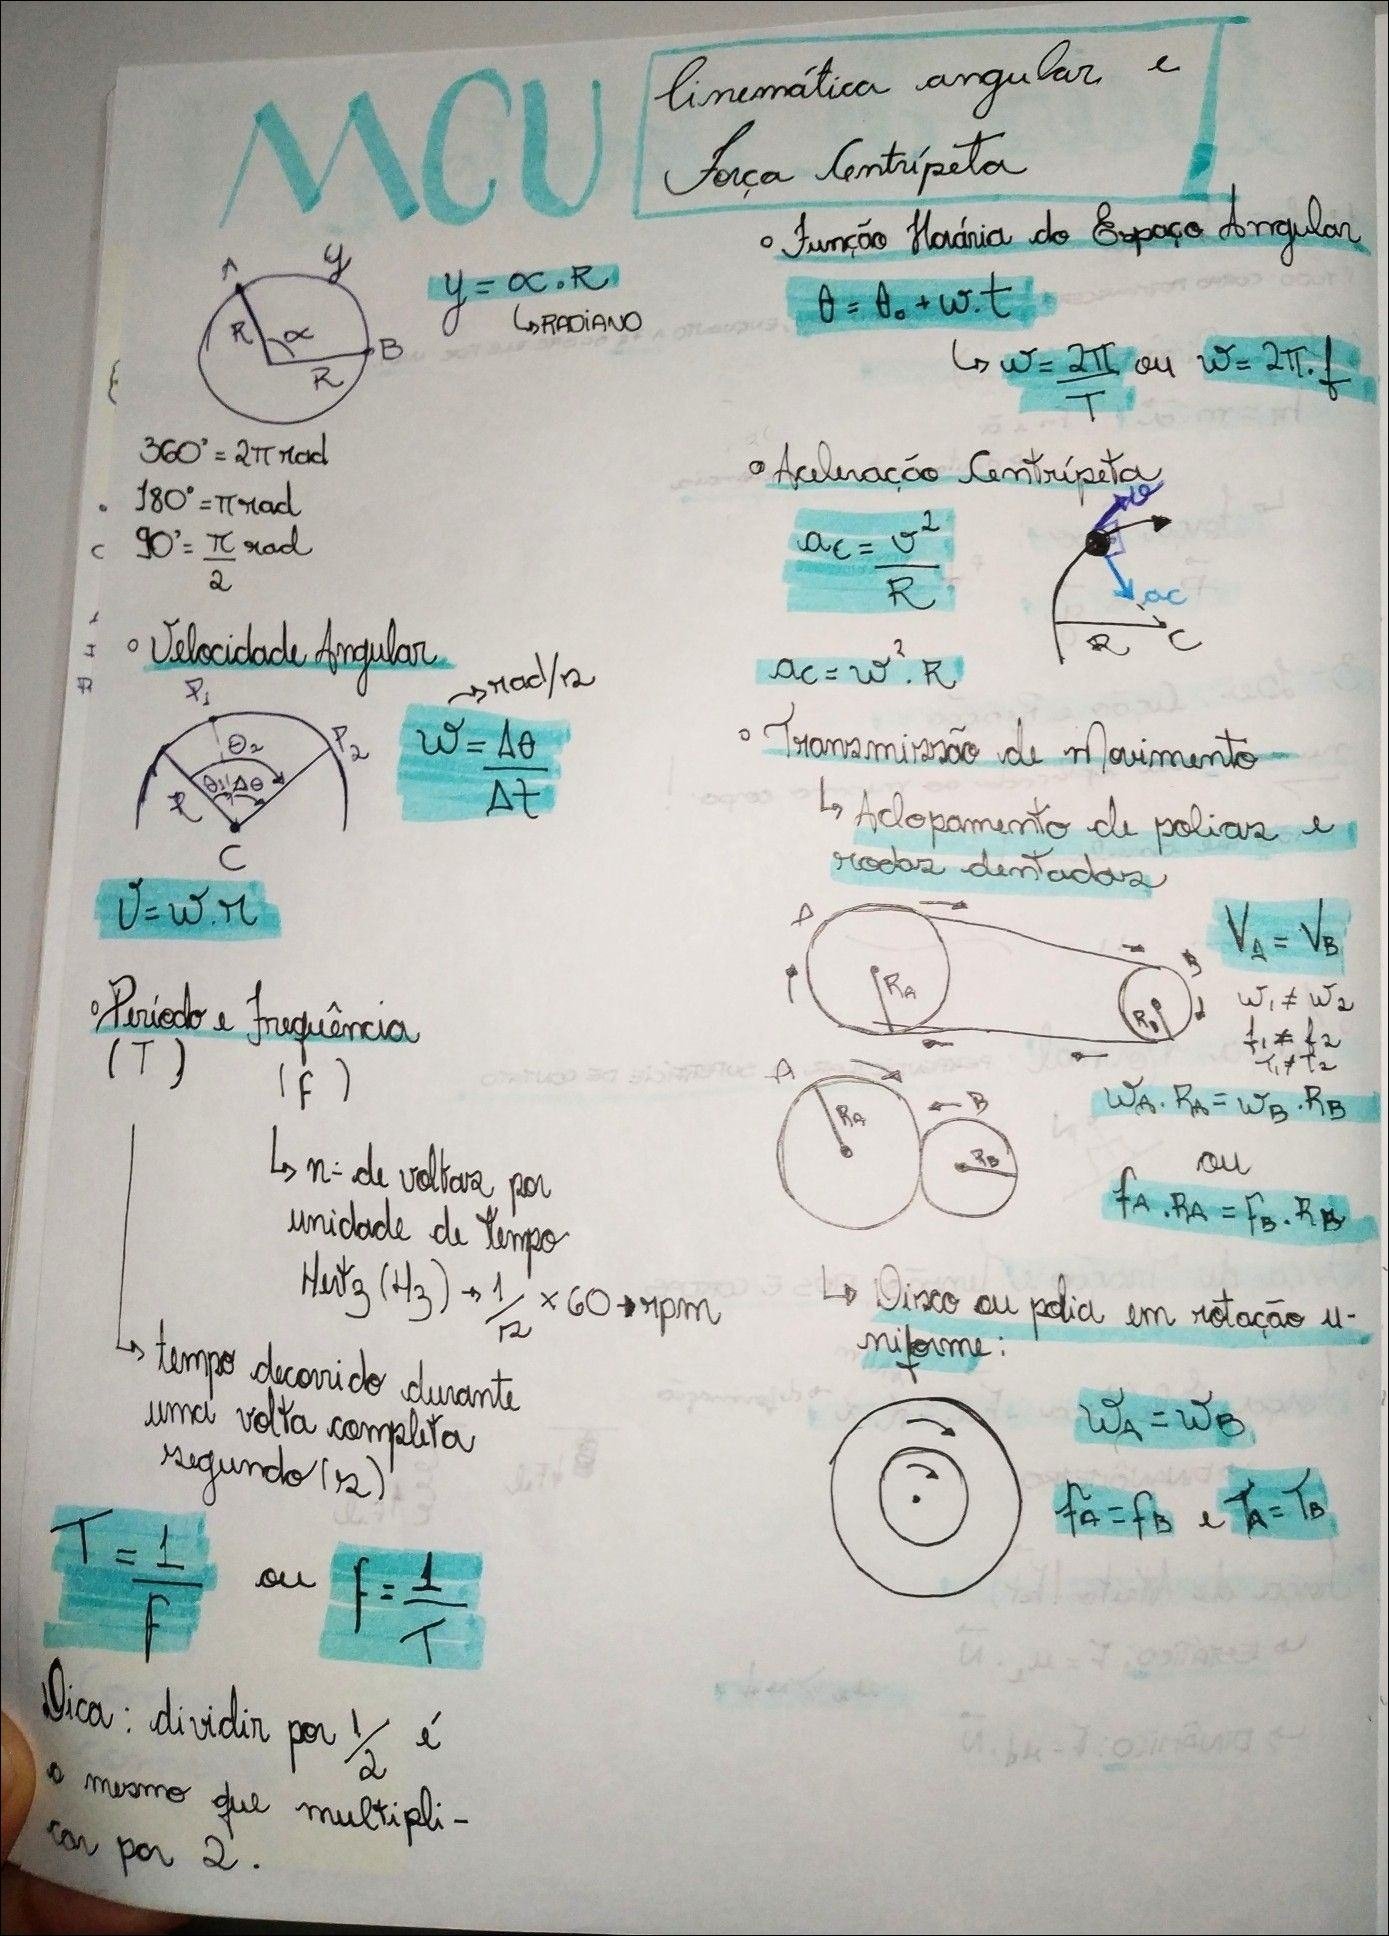 MCU
Cinemática angular e
Força Centrípeta
A
y
R
α
B
R
y = α.R
↳ RADIANO
360° = 2π rad
180° = π rad
90° = π/2 rad
° Velocidade Angular
→ rad/s
P₁
θ₂
P₂
θ₁
Δθ
C
w = Δθ/Δt
v = w.r
° Período e Frequência
(T)
(f)
↳ nº de voltas por
unidade de tempo
Hertz (Hz) → 1/s × 60 → rpm
↳ tempo decorrido durante
uma volta completa
segundo (s)
T = 1/F ou f = 1/T
Dica: dividir por 1/2 é
o mesmo que multipli-
car por 2.
° Função Horária do Espaço Angular
θ = θ₀ + w.t
↳ w = 2π/T ou w = 2π.f
° Aceleração Centrípeta
ac = v²/R
v
ac
R
C
ac = w².R
° Transmissão de Movimento
↳ Aclopamento de polias e
rodas dentadas
A
RA
B
RB
VA = VB
w₁ ≠ w₂
f₁ ≠ f₂
T₁ ≠ T₂
A
RA
B
RB
wA.RA = wB.RB
ou
fA.RA = fB.RB
↳ Disco ou polia em rotação u-
niforme:
wA = wB
fA = fB e TA = TB